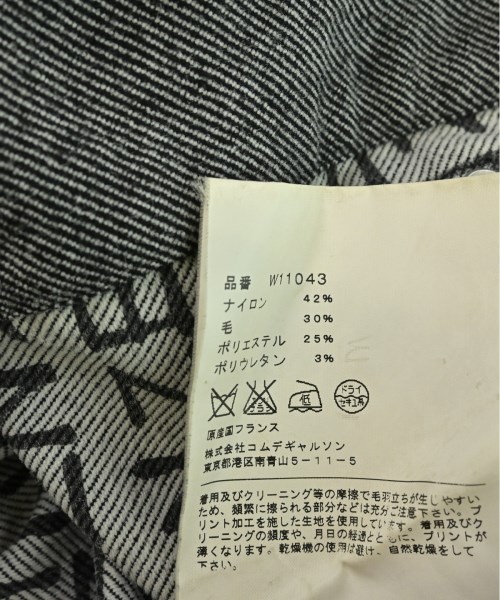 品番 W11043
ナイロン 42%
毛 30%
ポリエステル 25%
ポリウレタン 3%
エンソサラシ 低 ドライ セキユ系
原産国フランス
株式会社コムデギャルソン
東京都港区南青山5-11-5
着用及びクリーニング等の摩擦で毛羽立ちが生じやすい
ため、頻繁に擦られる部分などは充分ご注意下さい。プ
リント加工を施した生地を使用しています。着用及びク
リーニングの頻度や、月日の経過とともに、プリントが
薄くなります。乾燥機の使用は避け、自然乾燥をして
下さい。